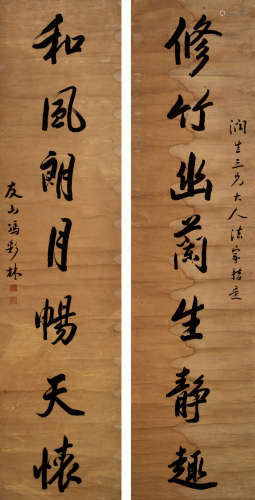 修竹幽蘭生静趣
润生三兄大人法家指正
和風朗月暢天懷
友山馮彩林